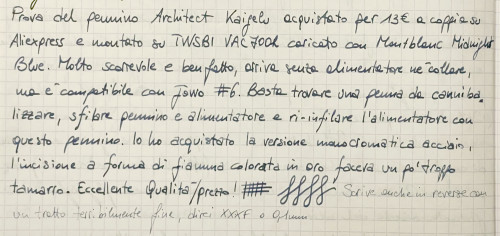 Prova del pennino Architect Kaigelu acquistato per 13€ a coppia su
Aliexpress e montato su TWSBI VAC700R caricato con Montblanc Midnight
Blue. Molto scorrevole e ben fatto, arriva senza alimentatore nè collare,
ma è compatibile con Jowo #6. Basta trovare una penna da canniba
lizzare, sfilare pennino e alimentatore e ri-infilare l'alimentatore con
questo pennino. Io ho acquistato la versione monocromatica acciaio,
l'incisione a forma di fiamma colorata in oro faceva un po' troppo
tamarro. Eccellente Qualità/prezzo! Scrive anche in reverse con
un tratto terribilmente fine, direi XXXF o 0,1mm